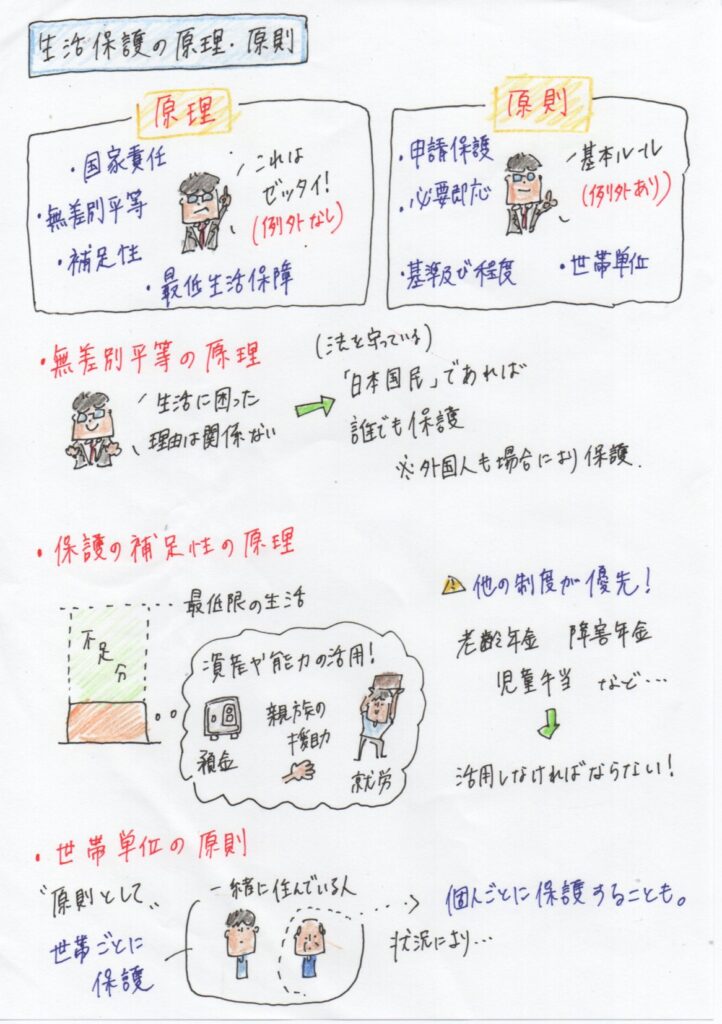 生活保護の原理・原則
原理
・国家責任
・無差別平等
・補足性
・最低生活保障
これは
ゼッタイ!
(例外なし)
原則
・申請保護
・必要即応
・基準及び程度
・世帯単位
基本ルール
(例外あり)
・無差別平等の原理
生活に困った
理由は関係ない
(法を守っている)
「日本国民」であれば
誰でも保護
※外国人も場合により保護.
・保護の補足性の原理
最低限の生活
不足分
資産や能力の活用!
預金
親族の
援助
就労
⚠他の制度が優先!
老齢年金 障害年金
児童手当 など…
活用しなければならない!
・世帯単位の原則
"原則として"
世帯ごとに
保護
一緒に住んでいる人
状況により…
個人ごとに保護することも。